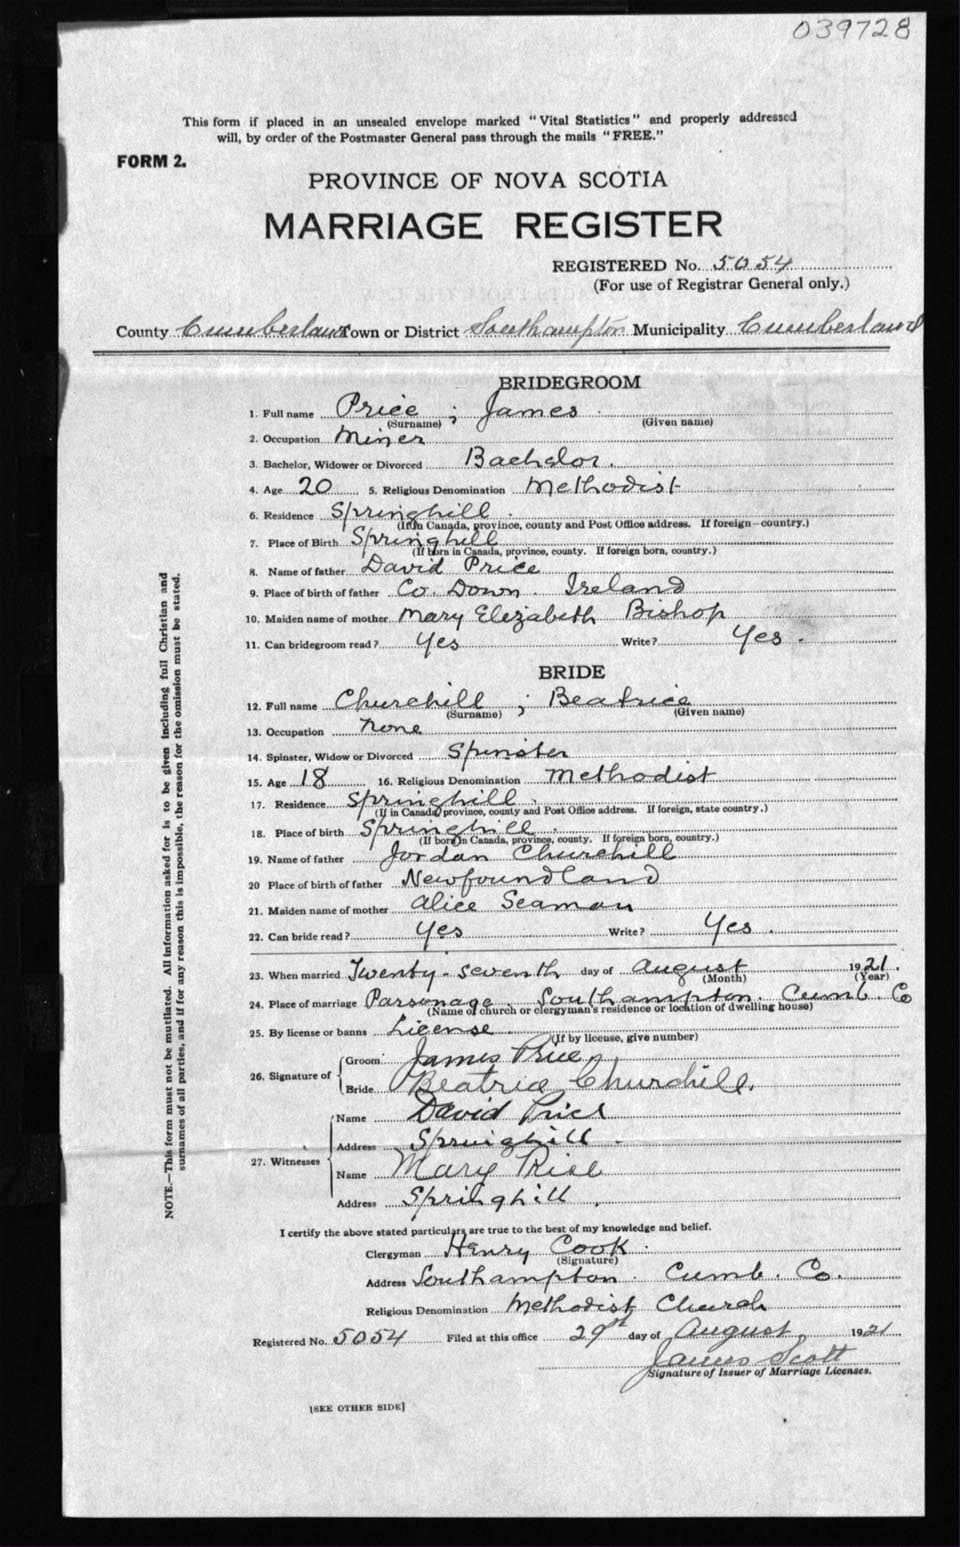 039728
This form if placed in an unsealed envelope marked "Vital Statistics" and properly addressed
will, by order of the Postmaster General pass through the mails "FREE."
FORM 2.
PROVINCE OF NOVA SCOTIA
MARRIAGE REGISTER
REGISTERED No. 5054
(For use of Registrar General only.)
County Cumberland Town or District Southampton Municipality Cumberland
BRIDEGROOM
1. Full name Price ; James
(Surname) (Given name)
2. Occupation Miner
3. Bachelor, Widower or Divorced Bachelor.
4. Age 20 5. Religious Denomination Methodist
6. Residence Springhill
(If in Canada, province, county and Post Office address. If foreign—country.)
7. Place of Birth Springhill
(If born in Canada, province, county. If foreign born, country.)
8. Name of father David Price
9. Place of birth of father Co. Down. Ireland
10. Maiden name of mother Mary Elezabeth Bishop
11. Can bridegroom read? Yes Write? Yes.
BRIDE
12. Full name Churchill ; Beatrice
(Surname) (Given name)
13. Occupation none
14. Spinster, Widow or Divorced Spinster
15. Age 18 16. Religious Denomination Methodist
17. Residence Springhill.
(If in Canada, province, county and Post Office address. If foreign, state country.)
18. Place of birth Springhill.
(If born in Canada, province, county. If foreign born, country.)
19. Name of father Jordan Churchill
20 Place of birth of father Newfoundland
21. Maiden name of mother Alice Seaman
22. Can bride read? Yes Write? Yes.
23. When married Twenty-seventh day of August 1921.
(Month) (Year)
24. Place of marriage Parsonage. Southampton. Cumb. Co
(Name of church or clergyman's residence or location of dwelling house)
25. By license or banns License
(If by license, give number)
26. Signature of Groom James Price
Bride Beatrice Churchill.
27. Witnesses Name David Price
Address Springhill.
Name Mary Price
Address Springhill.
I certify the above stated particulars are true to the best of my knowledge and belief.
Clergyman Henry Cook.
(Signature)
Address Southampton. Cumb. Co.
Religious Denomination Methodist Church
Registered No. 5054 Filed at this office 29th day of August 1921
James Scott
Signature of Issuer of Marriage Licenses.
[SEE OTHER SIDE]
NOTE.—This form must not be mutilated. All information asked for is to be given including full Christian and
surnames of all parties, and if for any reason this is impossible, the reason for the omission must be stated.